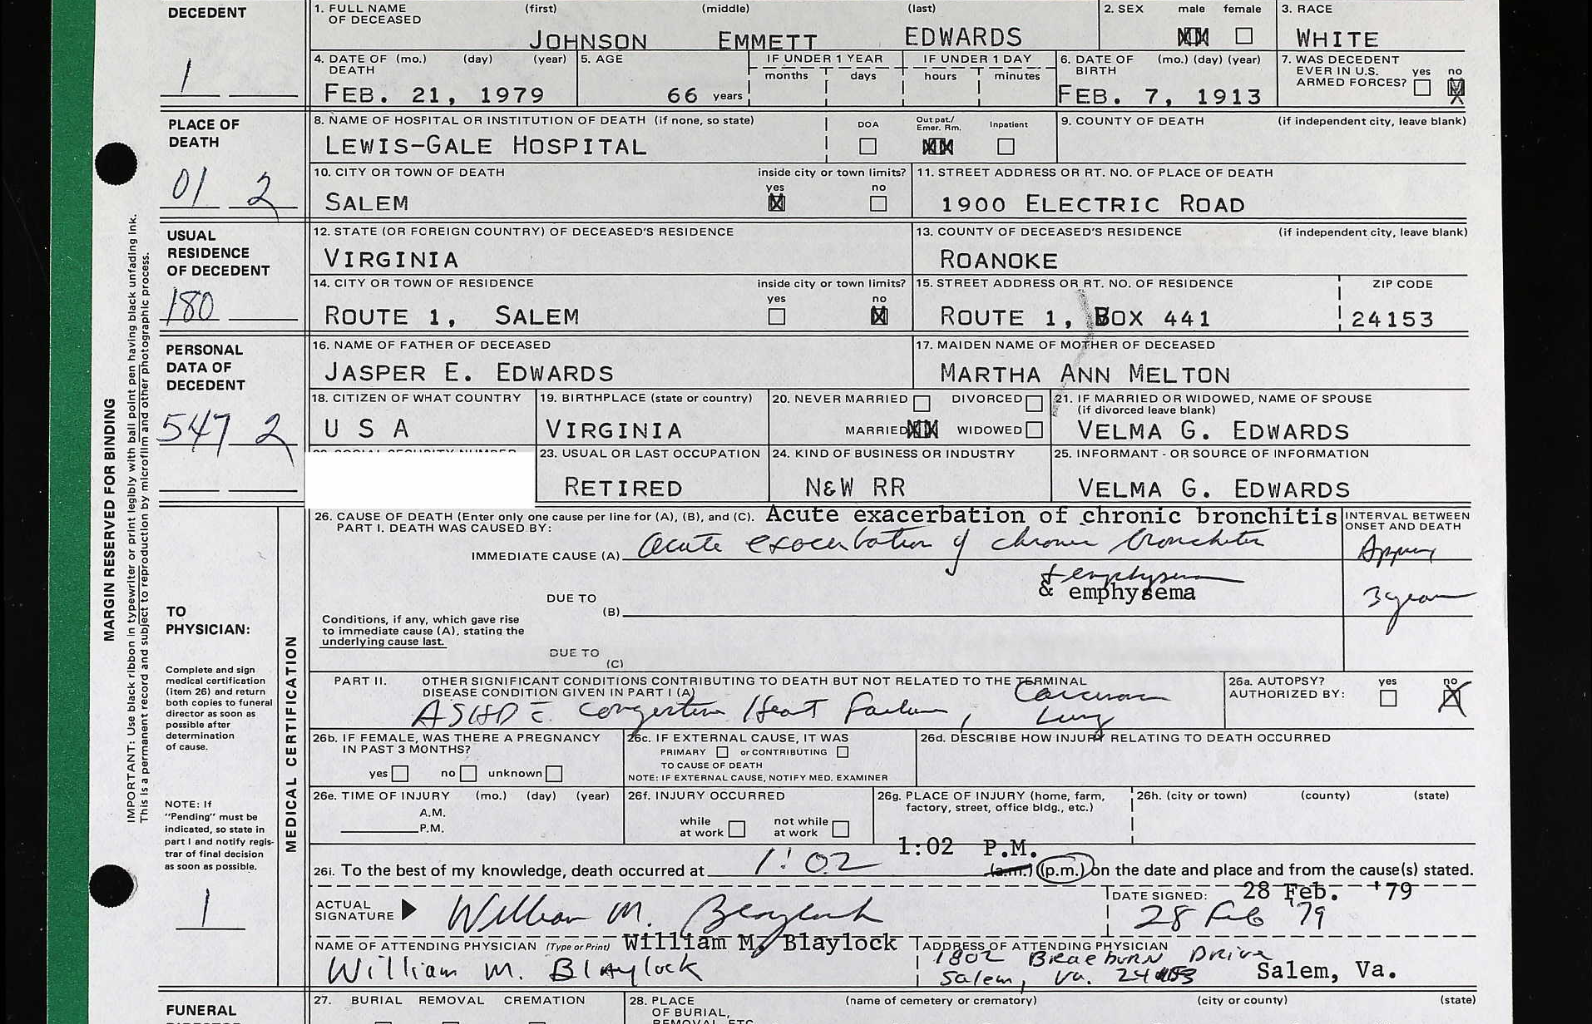 DECEDENT
1. FULL NAME OF DECEASED (first) (middle) (last) 2. SEX male female 3. RACE
JOHNSON EMMETT EDWARDS XX WHITE
4. DATE OF DEATH (mo.) (day) (year) 5. AGE IF UNDER 1 YEAR months days IF UNDER 1 DAY hours minutes 6. DATE OF BIRTH (mo.) (day) (year) 7. WAS DECEDENT EVER IN U.S. ARMED FORCES? yes no
1 FEB. 21, 1979 66 years FEB. 7, 1913 X
PLACE OF DEATH
8. NAME OF HOSPITAL OR INSTITUTION OF DEATH (if none, so state) DOA Out pat./ Emer. Rm. Inpatient 9. COUNTY OF DEATH (if independent city, leave blank)
LEWIS-GALE HOSPITAL XX
01 2
10. CITY OR TOWN OF DEATH inside city or town limits? yes no 11. STREET ADDRESS OR RT. NO. OF PLACE OF DEATH
SALEM X 1900 ELECTRIC ROAD
USUAL RESIDENCE OF DECEDENT
12. STATE (OR FOREIGN COUNTRY) OF DECEASED'S RESIDENCE 13. COUNTY OF DECEASED'S RESIDENCE (if independent city, leave blank)
VIRGINIA ROANOKE
180
14. CITY OR TOWN OF RESIDENCE inside city or town limits? yes no 15. STREET ADDRESS OR RT. NO. OF RESIDENCE ZIP CODE
ROUTE 1, SALEM X ROUTE 1, BOX 441 24153
PERSONAL DATA OF DECEDENT
16. NAME OF FATHER OF DECEASED 17. MAIDEN NAME OF MOTHER OF DECEASED
JASPER E. EDWARDS MARTHA ANN MELTON
547 2
18. CITIZEN OF WHAT COUNTRY 19. BIRTHPLACE (state or country) 20. NEVER MARRIED DIVORCED MARRIED XX WIDOWED 21. IF MARRIED OR WIDOWED, NAME OF SPOUSE (if divorced leave blank)
U S A VIRGINIA VELMA G. EDWARDS
23. USUAL OR LAST OCCUPATION 24. KIND OF BUSINESS OR INDUSTRY 25. INFORMANT - OR SOURCE OF INFORMATION
RETIRED N&W RR VELMA G. EDWARDS
MARGIN RESERVED FOR BINDING
IMPORTANT: Use black ribbon in typewriter or print legibly with ball point pen having black unfading ink.
This is a permanent record and subject to reproduction by microfilm and other photographic process.
TO PHYSICIAN:
Complete and sign
medical certification
(item 26) and return
both copies to funeral
director as soon as
possible after
determination
of cause.
NOTE: If
"Pending" must be
indicated, so state in
part I and notify regis-
trar of final decision
as soon as possible.
1
MEDICAL CERTIFICATION
26. CAUSE OF DEATH (Enter only one cause per line for (A), (B), and (C). Acute exacerbation of chronic bronchitis INTERVAL BETWEEN ONSET AND DEATH
PART I. DEATH WAS CAUSED BY:
IMMEDIATE CAUSE (A) acute exacerbation of chronic bronchitis Approx
& emphysema
& emphysema 3 years
DUE TO (B)
Conditions, if any, which gave rise
to immediate cause (A), stating the
underlying cause last.
DUE TO (C)
PART II. OTHER SIGNIFICANT CONDITIONS CONTRIBUTING TO DEATH BUT NOT RELATED TO THE TERMINAL DISEASE CONDITION GIVEN IN PART I (A) 26a. AUTOPSY? AUTHORIZED BY: yes no X
ASHD c̄ Congestive Heart Failure, Carcinoma Lung
26b. IF FEMALE, WAS THERE A PREGNANCY IN PAST 3 MONTHS? yes no unknown
26c. IF EXTERNAL CAUSE, IT WAS PRIMARY or CONTRIBUTING TO CAUSE OF DEATH
NOTE: IF EXTERNAL CAUSE, NOTIFY MED. EXAMINER
26d. DESCRIBE HOW INJURY RELATING TO DEATH OCCURRED
26e. TIME OF INJURY (mo.) (day) (year) A.M. P.M.
26f. INJURY OCCURRED while at work not while at work
26g. PLACE OF INJURY (home, farm, factory, street, office bldg., etc.)
26h. (city or town) (county) (state)
1:02 P.M.
26i. To the best of my knowledge, death occurred at 1:02 (a.m.) (p.m.) on the date and place and from the cause(s) stated.
ACTUAL SIGNATURE William M. Blaylock DATE SIGNED: 28 Feb. '79
28 Feb '79
NAME OF ATTENDING PHYSICIAN (Type or Print) William M. Blaylock ADDRESS OF ATTENDING PHYSICIAN
William M. Blaylock 1802 Braeburn Drive
Salem, Va. Salem, Va.
FUNERAL
27. BURIAL REMOVAL CREMATION 28. PLACE OF BURIAL, (name of cemetery or crematory) (city or county) (state)